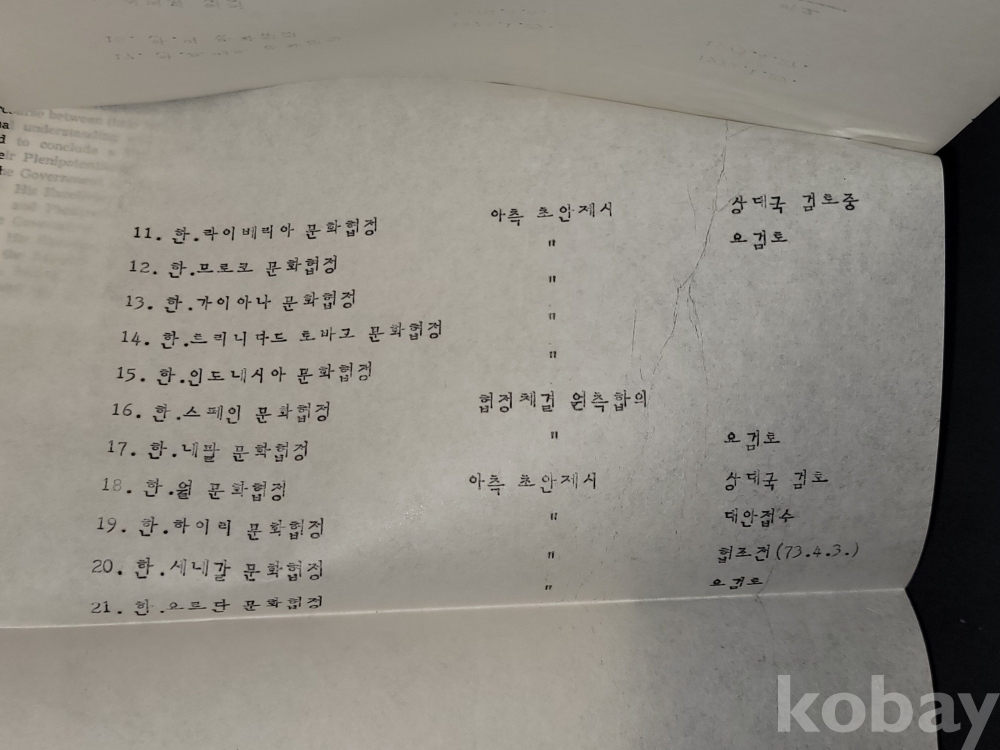 11. 한.라이베리아 문화협정 아측 초안제시 상대국 검토중
12. 한.모로코 문화협정 " 요검토
13. 한.가이아나 문화협정 "
14. 한.트리니다드 토바고 문화협정 "
15. 한.인도네시아 문화협정 "
16. 한.스페인 문화협정 협정체결 원측합의
17. 한.네팔 문화협정 " 요검토
18. 한.월 문화협정 아측 초안제시 상대국 검토
19. 한.하이티 문화협정 " 대안접수
20. 한.세네갈 문화협정 " 협조전(73.4.3.)
21. 한.요르단 문화협정 " 요검토
between
understanding
to conclude a
Plenipotent
the Government
His
and
kobay